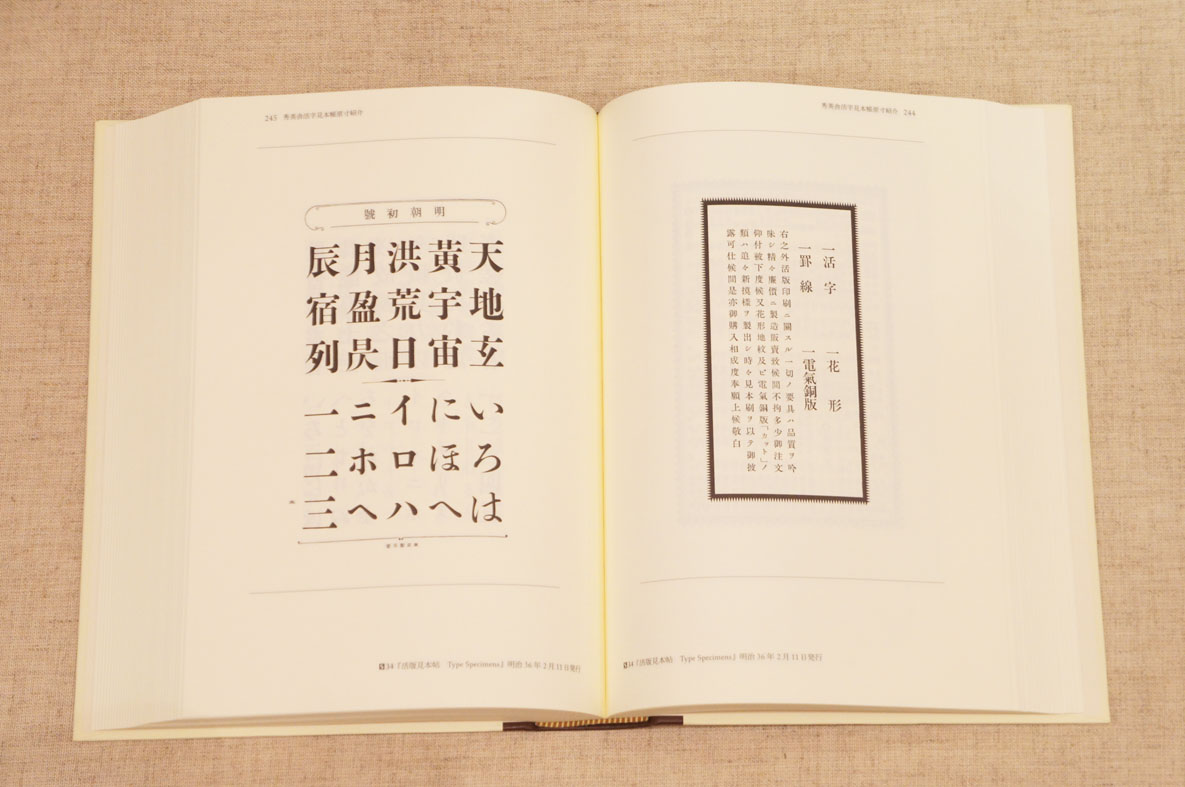 秀英舎活字見本帳原寸紹介 244
一活字 一花形
一罫線 一電氣銅版
右之外活版印刷ニ關スル一切ノ要具ハ品質ヲ吟
味シ精々廉價ニ製造販賣致候間不拘多少御注文
仰付被下度候又花形地紋及ビ電氣銅版「カット」ノ
類ハ追々新摸樣ヲ製出シ時々見本刷ヲ以テ御披
露可仕候間是亦御購入相成度奉願上候敬白
34『活版見本帖 Type Specimens』明治36年2月11日発行
245 秀英舎活字見本帳原寸紹介
明朝初號
天地玄
黃宇宙
洪荒日
月盈昃
辰宿列
いろは
にほへ
イロハ
ニホヘ
一二三
34『活版見本帖 Type Specimens』明治36年2月11日発行